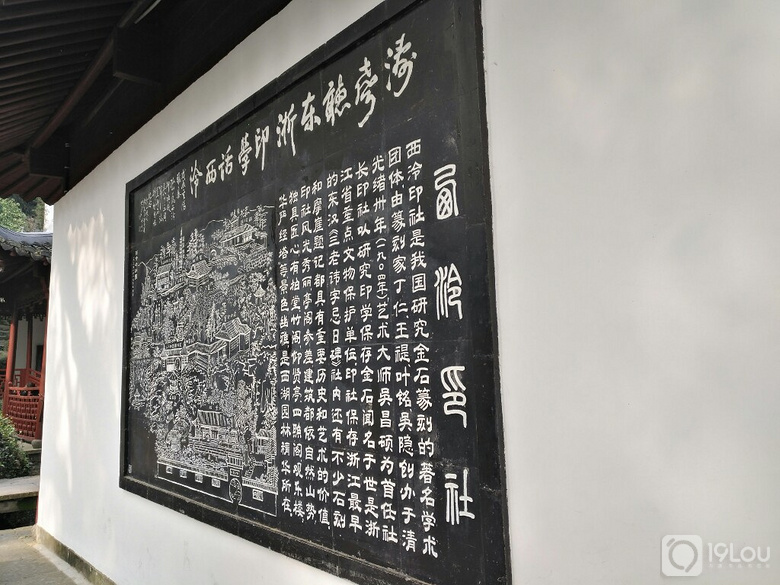 涛声聽东浙印學話西泠
西泠印社
西泠印社是我国研究金石篆刻的著名学术
团体,由篆刻家丁仁王禔叶铭吴隐创办于清
光绪卅年(一九〇四年)艺术大师吴昌硕为首任社
长印社以研究印学保存金石闻名于世是浙
江省重点文物保护单位,印社保存浙江最早
的东汉《三老讳字忌日碑》社内还有不少石刻
和摩崖题记都具有重要历史和艺术的价值
印社风光秀丽亭阁参差建筑都依自然山势
独具匠心有柏堂竹阁仰贤亭四照阁观乐楼
华严经塔等景色幽雅是西湖园林精华所在
19LOU